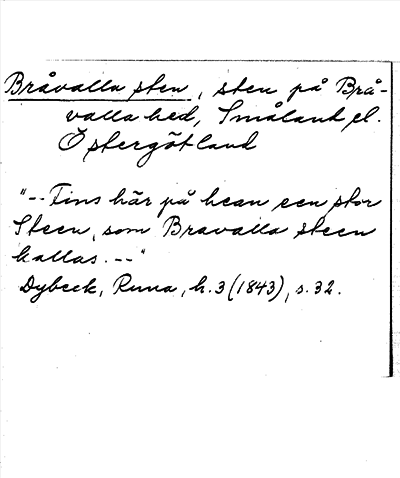 Bråvalla sten, sten på Brå-
valla hed, Småland el.
Östergötland
"-- Fins här på hean een stor
Steen, som Bravalla steen
kallas. --"
Dybeck, Runa, h. 3 (1843), s. 32.